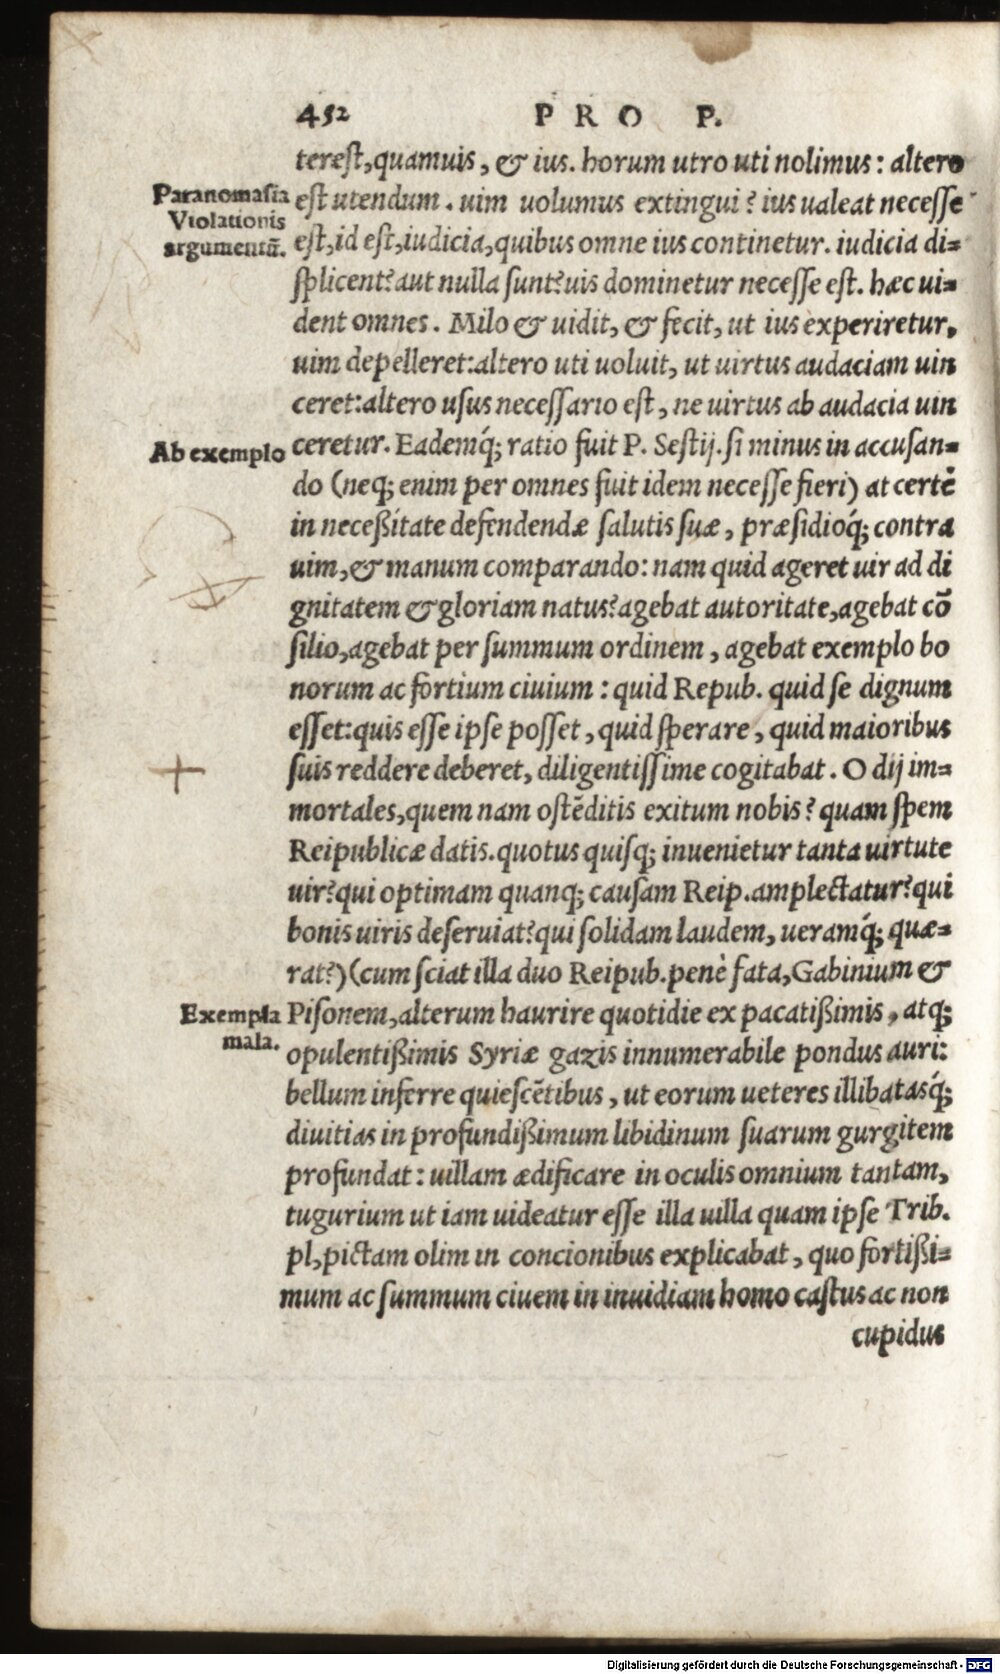 452 PRO P.
terest, quamuis, & ius. horum utro uti nolimus: altero
Paranomasia
est utendum. uim uolumus extingui? ius ualeat necesse
Violationis
argumentū.
est, id est, iudicia, quibus omne ius continetur. iudicia di=
splicent? aut nulla sunt? uis dominetur necesse est. hæc ui=
dent omnes. Milo & uidit, & fecit, ut ius experiretur,
uim depelleret: altero uti uoluit, ut uirtus audaciam uin
ceret: altero usus necessario est, ne uirtus ab audacia uin
Ab exemplo
ceretur. Eademq́; ratio fuit P. Sestij. si minus in accusan=
do (neq; enim per omnes fuit idem necesse fieri) at certè
in neceßitate defendendæ salutis suæ, præsidioq́; contra
uim, & manum comparando: nam quid ageret uir ad di
gnitatem & gloriam natus? agebat autoritate, agebat cō
silio, agebat per summum ordinem, agebat exemplo bo
norum ac fortium ciuium: quid Repub. quid se dignum
esset: quis esse ipse posset, quid sperare, quid maioribus
suis reddere deberet, diligentissime cogitabat. O dij im=
mortales, quem nam ostēditis exitum nobis? quam spem
Reipublicæ datis. quotus quisq; inuenietur tanta uirtute
uir? qui optimam quanq; causam Reip. amplectatur? qui
bonis uiris deseruiat? qui solidam laudem, ueramq́; quæ=
rat?) (cum sciat illa duo Reipub. penè fata, Gabinium &
Exempla
mala.
Pisonem, alterum haurire quotidie ex pacatißimis, atq;
opulentißimis Syriæ gazis innumerabile pondus auri:
bellum inferre quiescētibus, ut eorum ueteres illibatasq́;
diuitias in profundißimum libidinum suarum gurgitem
profundat: uillam ædificare in oculis omnium tantam,
tugurium ut iam uideatur esse illa uilla quam ipse Trib.
pl, pictam olim in concionibus explicabat, quo fortißi=
mum ac summum ciuem in inuidiam homo castus ac non
cupidus
Digitalisierung gefördert durch die Deutsche Forschungsgemeinschaft - DFG